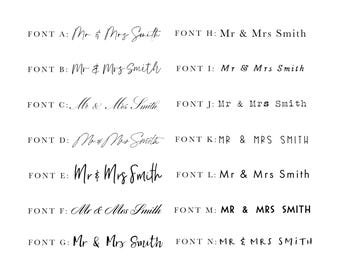 FONT A: Mr & Mrs Smith
FONT B: Mr & Mrs Smith
FONT C: Mr & Mrs Smith
FONT D: Mr & Mrs Smith
FONT E: Mr & Mrs Smith
FONT F: Mr & Mrs Smith
FONT G: Mr & Mrs Smith
FONT H: Mr & Mrs Smith
FONT I: Mr & Mrs Smith
FONT J: Mr & Mrs Smith
FONT K: MR & MRS SMITH
FONT L: Mr & Mrs Smith
FONT M: MR & MRS SMITH
FONT N: MR & MRS SMITH